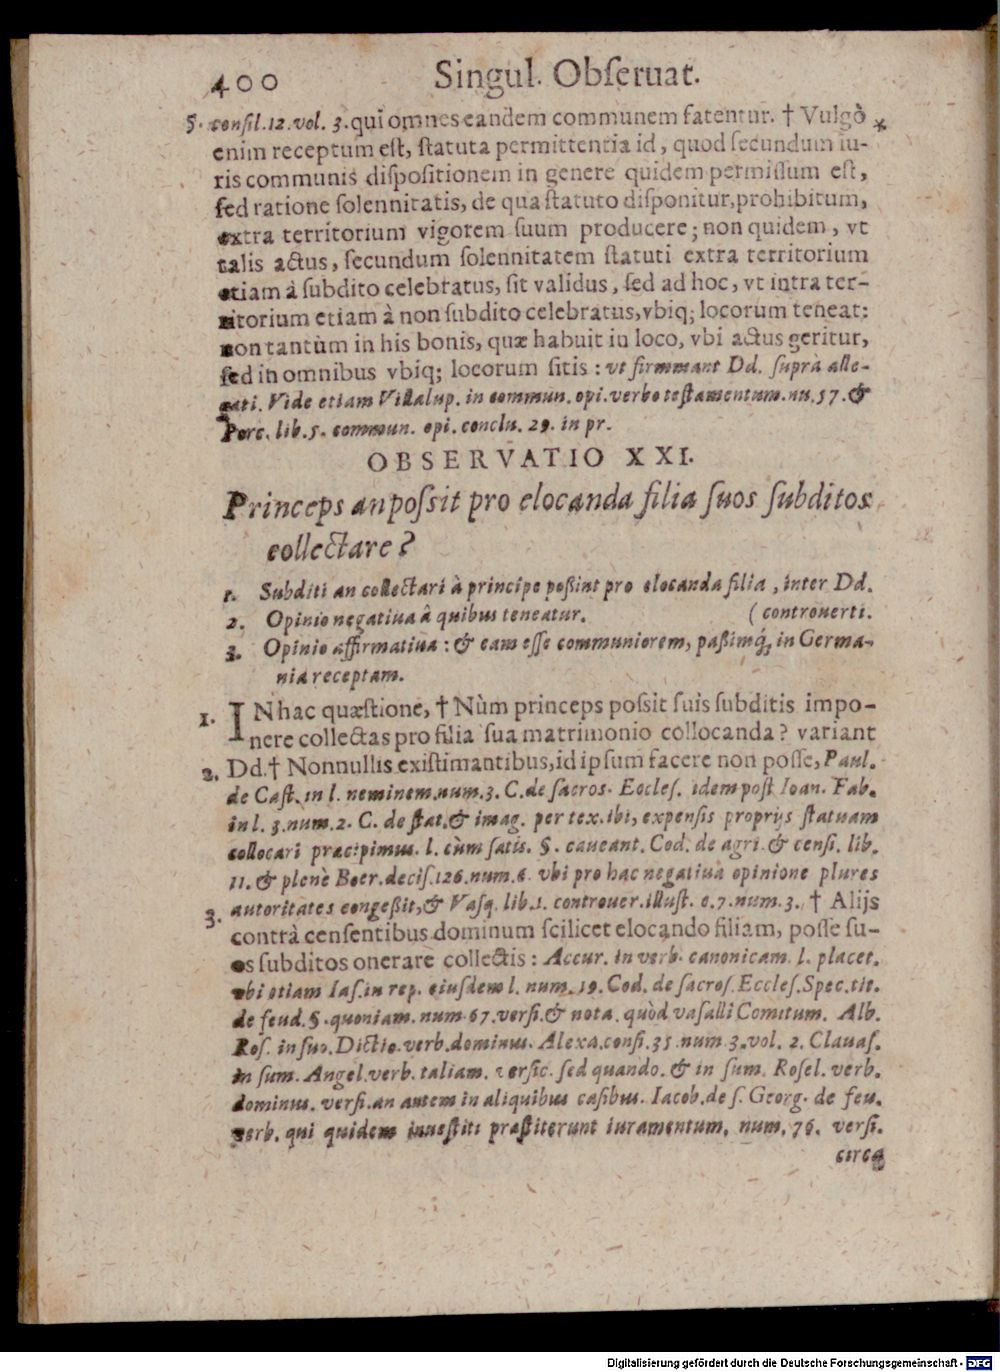 400 Singul. Obſeruat.
5. conſil.12.vol. 3.qui omnes eandem communem fatentur. † Vulgò *
enim receptum eſt, ſtatuta permittentia id, quod ſecundum iu-
ris communis diſpoſitionem in genere quidem permiſſum eſt,
ſed ratione ſolennitatis, de qua ſtatuto diſponitur,prohibitum,
extra territorium vigorem ſuum producere; non quidem, vt
talis actus, ſecundum ſolennitatem ſtatuti extra territorium
etiam à ſubdito celebratus, ſit validus, ſed ad hoc, vt intra ter-
ritorium etiam à non ſubdito celebratus,vbiq; locorum teneat:
non tantùm in his bonis, quæ habuit in loco, vbi actus geritur,
ſed in omnibus vbiq; locorum ſitis : vt firmmant Dd. ſuprà alle-
gati. Vide etiam Villalup. in commun. opi. verbo teſtamentum.nu.57.&
Porc. lib.5. commun. opi. conclu. 29. in pr.
OBSERVATIO XXI.
Princeps an poſsit pro elocanda filia ſuos ſubditos
collectare?
1. Subditi an collectari à principe poßint pro elocanda filia , inter Dd.
2. Opinio negatiua â quibus teneatur. ( controuerti.
3. Opinio affirmatiua : & eam eſſe communiorem, paßimq́; in Germa-
nia receptam.
1. IN hac quæſtione, † Nùm princeps poſsit ſuis ſubditis impo-
nere collectas pro filia ſua matrimonio collocanda? variant
2. Dd.† Nonnullis exiſtimantibus,id ipſum facere non poſſe, Paul.
de Caſt. in l. neminem.num.3. C.de ſacros. Eccleſ. idem poſt Ioan. Fab.
in l. 3.num.2. C. de ſtat.& imag. per tex.ibi, expenſis proprijs ſtatuam
collocari præcipimus. l. cùm ſatis. §. caueant. Cod. de agri. & cenſi. lib.
11. & plenè Boer.deciſ.126.num.6. vbi pro hac negatiua opinione plures
autoritates congeßit,& Vaſq. lib.1. controuer.illuſt. c.7.num.3. † Alijs
3. contrà cenſentibus dominum ſcilicet elocando filiam, poſſe ſu-
os ſubditos onerare collectis : Accur. in verb. canonicam. l. placet.
vbi etiam Iaſ.in rep. eiuſdem l. num.19. Cod. de ſacroſ. Eccleſ.Spec.tit.
de feud. §.quoniam.num.67.verſi.& nota. quòd vaſalli Comitum. Alb.
Roſ. in ſuo.Dictio.verb.dominus. Alexa.conſi.35.num.3.vol. 2. Clauaſ.
in ſum. Angel.verb. taliam. verſic. ſed quando. & in ſum. Roſel. verb.
dominus. verſi.an autem in aliquibus caſibus. Iacob.de ſ. Georg. de feu.
verb. qui quidem inueſtiti præſtiterunt iuramentum, num. 76. verſi.
circa
Digitalisierung gefördert durch die Deutsche Forschungsgemeinschaft - DFG